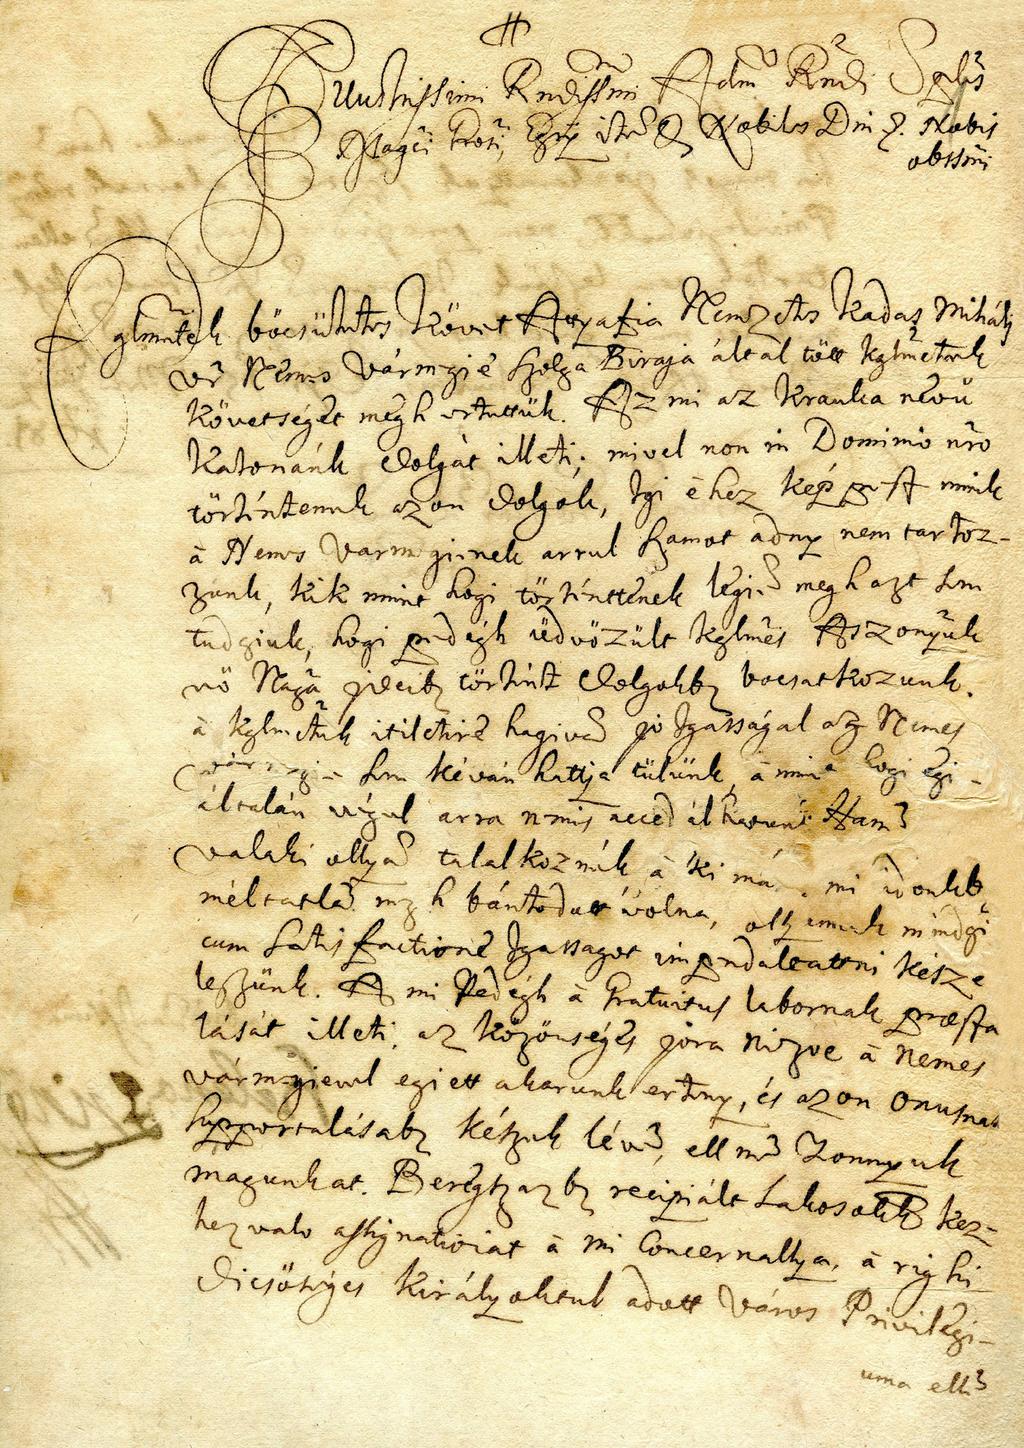 Illustrissimi Rndissmi Adm Rndi Sples
Magci Grosi, Egry item & Nobiles Dni &. Nobis
obssmi
Kglmetek böcsületes követ Attyafia Nemzetes Kadas Mihály
Vr Nemes Vármegie Szolga Biraja által tött kglmetek
követségét megh ertettük. Az mi az Kranka nevü
Katonánk dolgát illeti; mivel non in Dominio nro
törtíntenek azon dolgok, Igi ehez kép pest mink
à Nemes Varmegienek arrul Szamot adny nem tartoz-
zunk, kik mint hogi törtínttenek légien megh azt sem
tudgiuk, hogi pedégh üdvözült kglmes Aszonyunk
eö Naga idejeby törtínt dolgokby bocsatkozunk.
à kglmetek itiletire hagiva jo Igasságal az Nemes
vármegie sem kévánhattja tülünk, à mint hogi égi-
általán végvel arra nemis accedálhatunk Hanem
valaki ollyan talalkoznék à ki má mi üdonkby
méltatlan megh bántodott volna, ollyannak mindgi
cum Satisfactione Igassagot impendaltattni késze
leszünk. A mi Pedégh à Gratuitus labornak præsta
lását illeti, az közönséges jora nizve à Nemes
vármegievel egiett akarunk érteny, és azon onusnak
supportalásaby készek lévén, ell nem Vonnyuk
magunkat. Beregszazby recipiált Lakosokk kez-
hez valo assignatioiat à mi Concernallya, à righi
dicsöséges Királyoktul adott Város Privilegi-
uma ellen